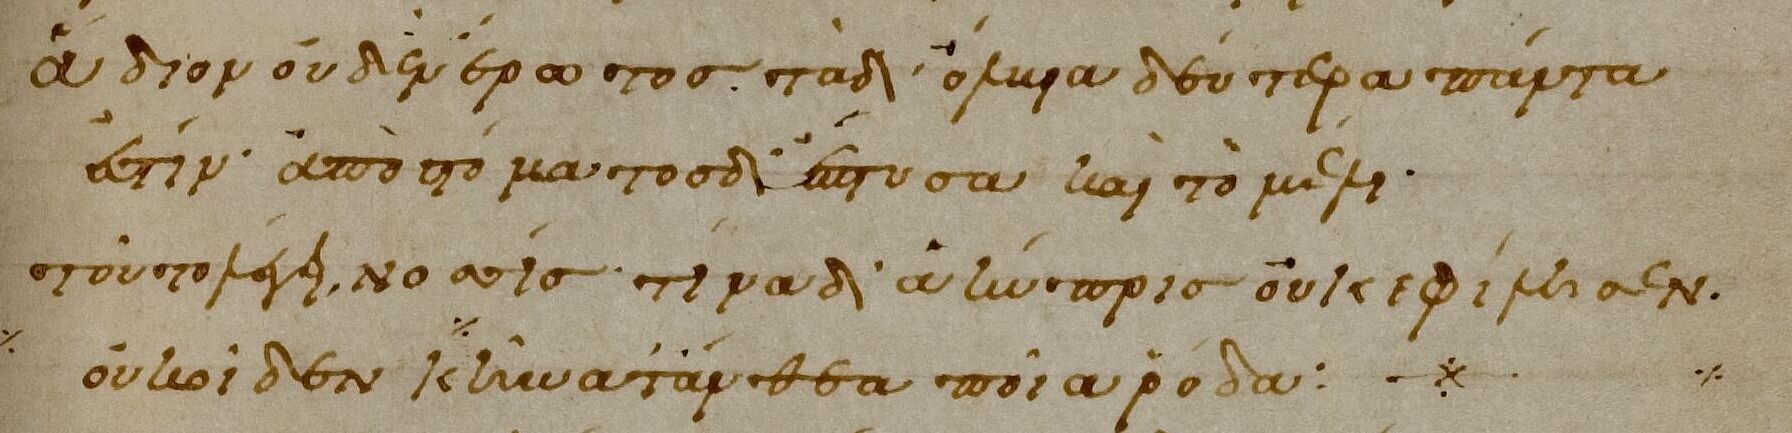 ἅδιον οὐδὲν ἔρωτος· τὰ δ' ὄλβια δεύτερα πάντα
ἐστίν· ἀπὸ στόματος δ' ἔπτυσα καὶ τὸ μέλι·
τοῦτο λέγει νοσσίς· τίνα δ' ἁ κύπρις οὐκ ἐφίλησεν.
οὐκ οἶδεν κῆνα τἄνθεα ποῖα ῥόδα: